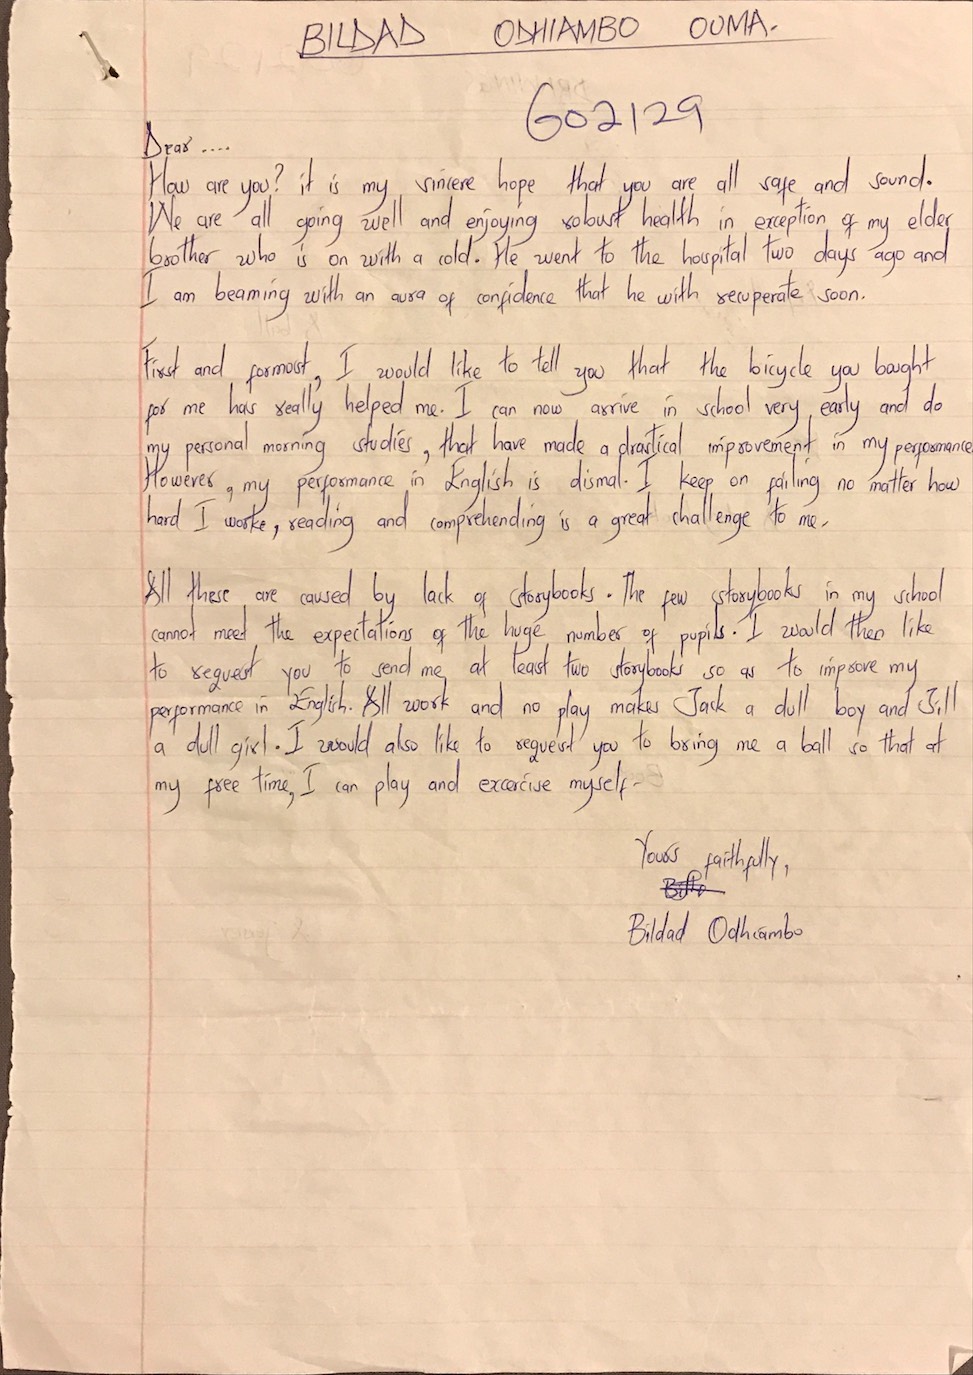 BILDAD ODHIAMBO OUMA.
G02129
Dear ....
How are you? it is my sincere hope that you are all safe and sound.
We are all going well and enjoying robust health in exception of my elder
brother who is on with a cold. He went to the hospital two days ago and
I am beaming with an aura of confidence that he with recuperate soon.
First and formost, I would like to tell you that the bicycle you bought
for me has really helped me. I can now arrive in school very early and do
my personal morning studies, that have made a drastical improvement in my performance
However, my performance in English is dismal. I keep on failing no matter how
hard I worke, reading and comprehending is a great challenge to me.
All these are caused by lack of storybooks. The few storybooks in my school
cannot meet the expectations of the huge number of pupils. I would then like
to request you to send me at least two storybooks so as to improve my
performance in English. All work and no play makes Jack a dull boy and Jill
a dull girl. I would also like to request you to bring me a ball so that at
my free time, I can play and excercise myself.
Yours faithfully,
Bildad Odhiambo